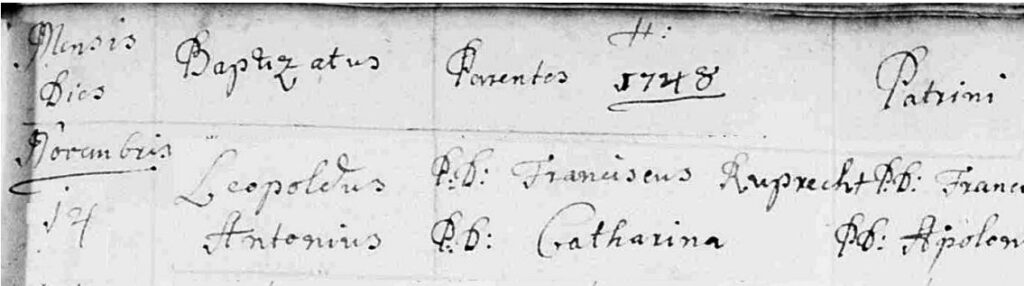 Mensis Baptizatus Parentes #: 1748 Patrini
Dies
Novembris
Leopoldus P:b: Franciscus Ruprecht P:b: Franc
14 Antonius P:b: Catharina P:b: Apolon